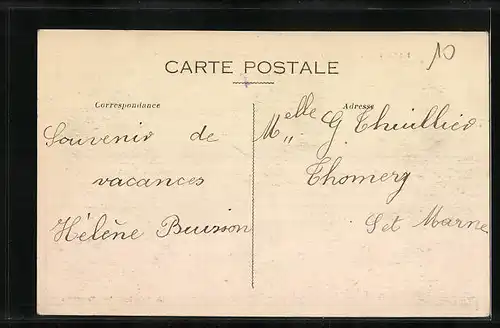 10
CARTE POSTALE
Correspondance
Adresse
Souvenir de
vacances
Hélène Buisson
Melle G Thuillier
Thomery
S et Marne